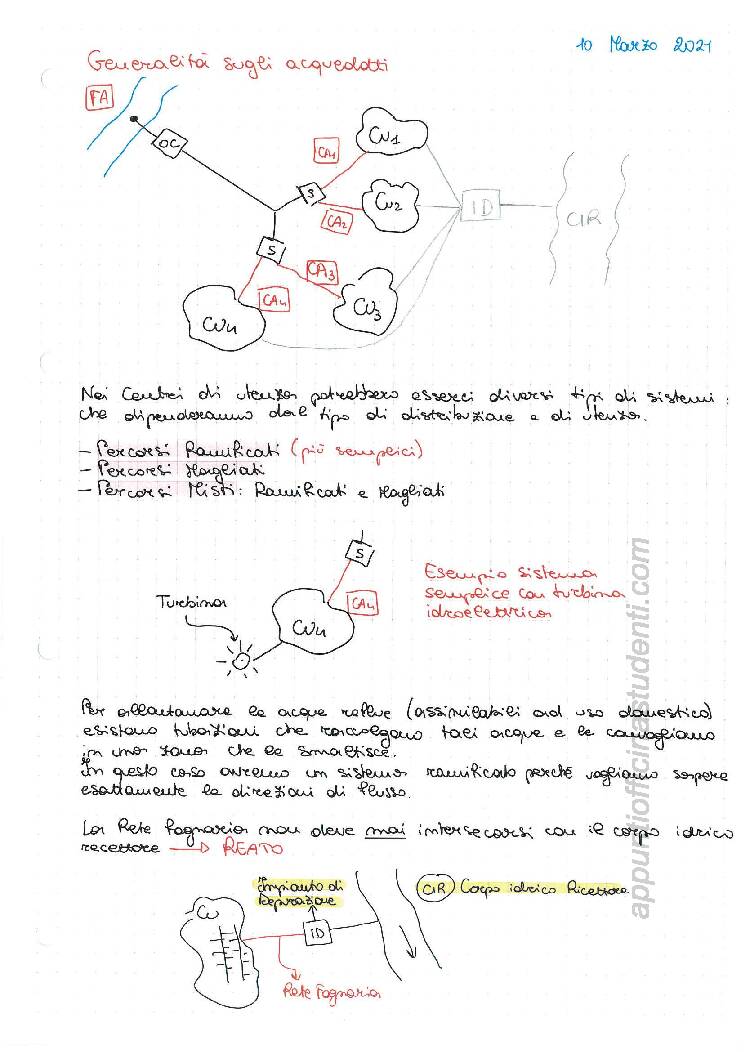 10 Marzo 2021
Generalità sugli acquedotti
FA
OC
CA1
CU1
S
CA2
CU2
ID
CIR
S
CA3
CA4
CU3
CU4
Nei Centri di utenza potrebbero esserci diversi tipi di sistemi
che dipenderanno dal tipo di distribuzione e di utenza.
- Percorsi Ramificati (più semplici)
- Percorsi Magliati
- Percorsi Misti: Ramificati e Magliati
S
Esempio sistema
semplice con turbina
idroelettrica
CA4
Turbina
CU4
Per allontanare le acque reflue (assimilabili ad uso domestico)
esistono tubazioni che raccolgono tali acque e le convogliano
in una zona che le smaltisce.
In questo caso avremo un sistema ramificato perché vogliamo sapere
esattamente la direzioni di flusso.
La Rete fognaria non deve mai intersecarsi con il corpo idrico
recettore → REATO
Impianto di
Depurazione
CIR Corpo idrico Ricettore
CU
ID
Rete Fognaria
appuntiofficinastudenti.com